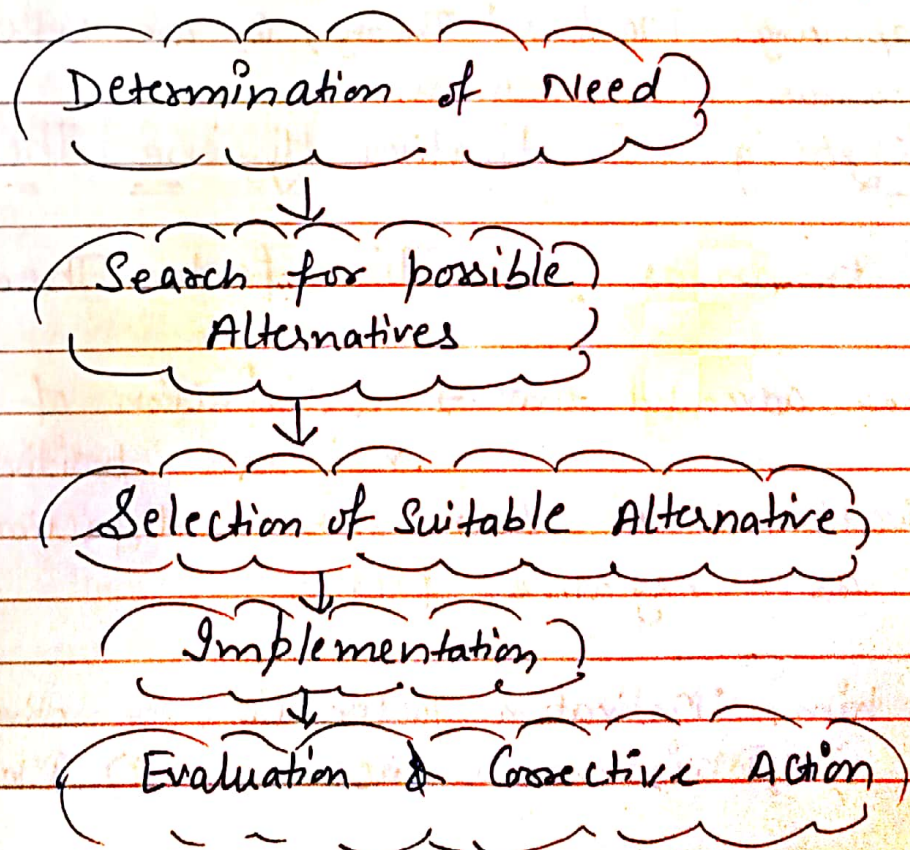 Determination of Need
Search for possible
Alternatives
Selection of Suitable Alternative
Implementation
Evaluation & Corrective Action